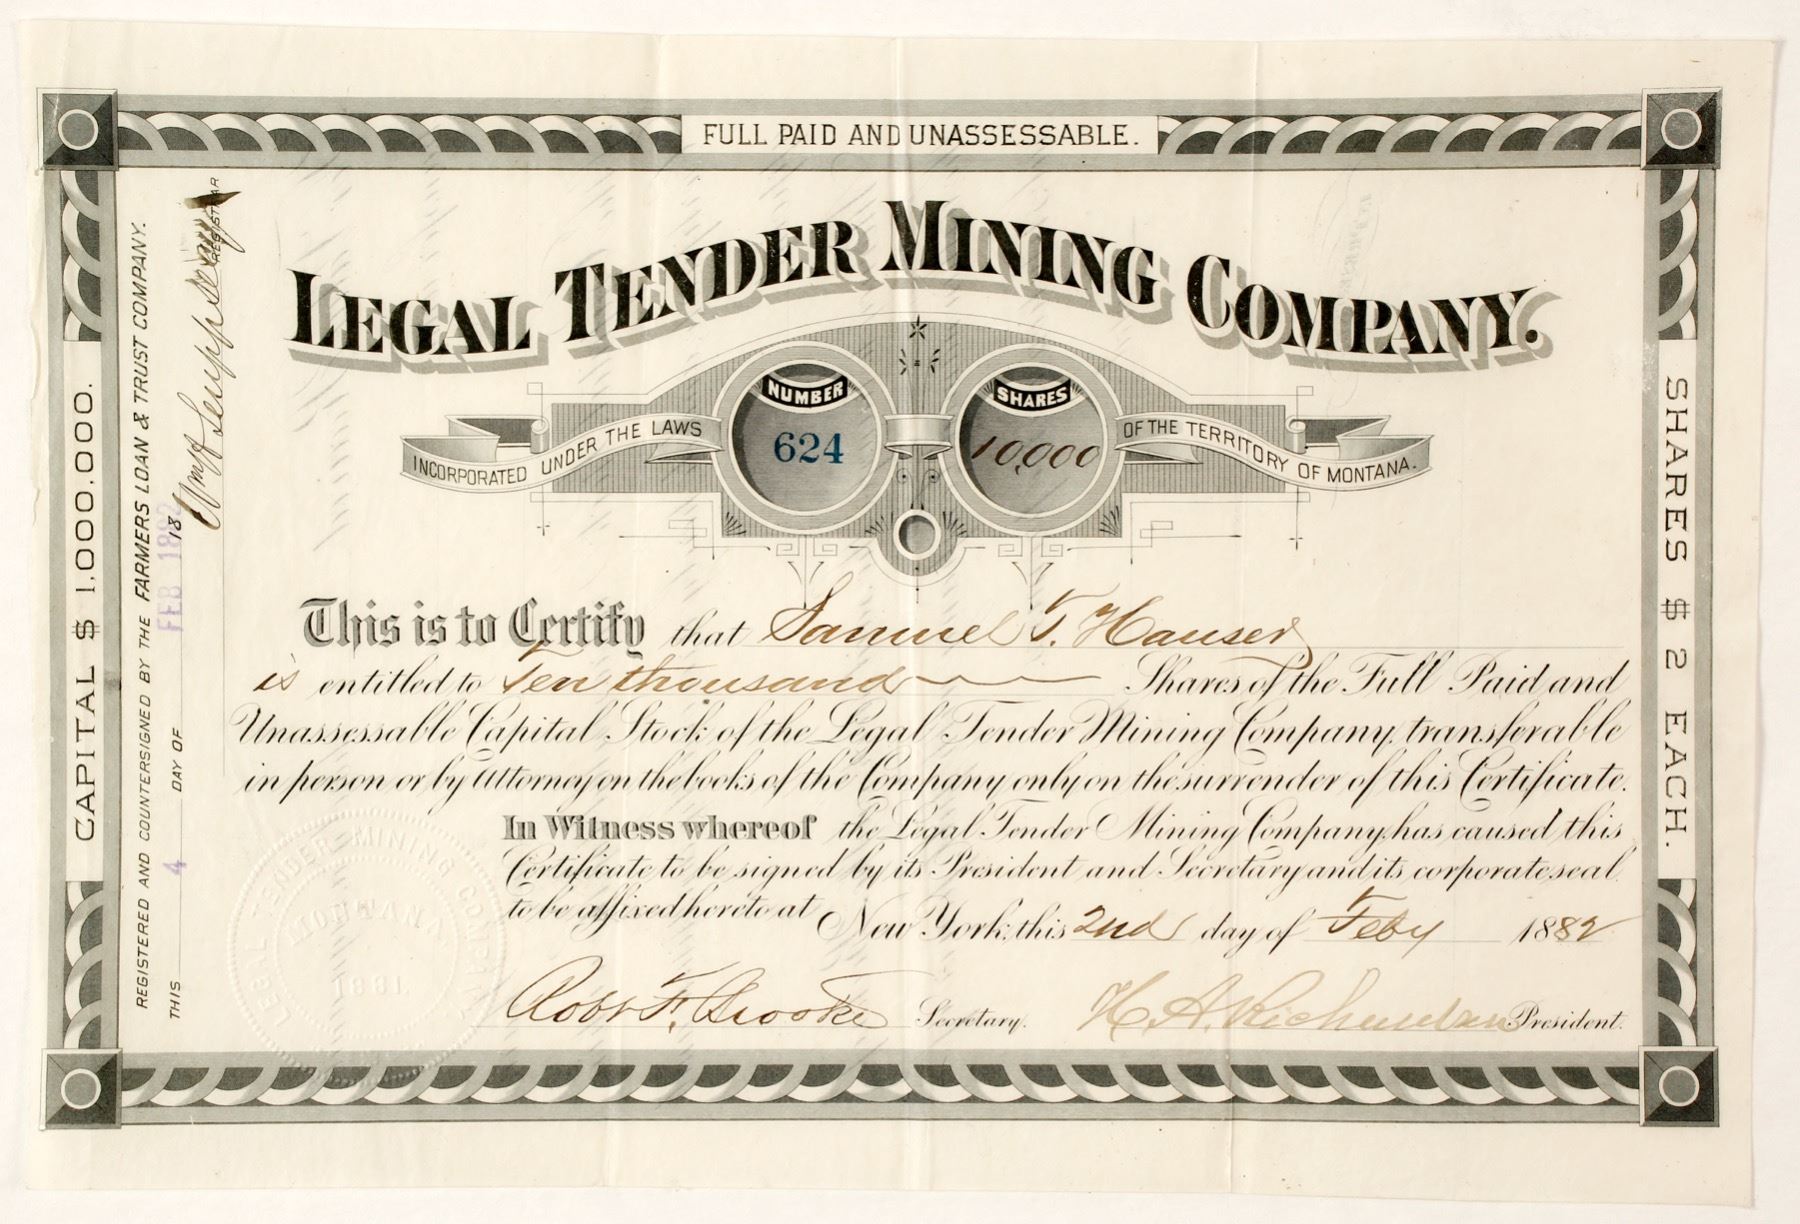 FULL PAID AND UNASSESSABLE.
LEGAL TENDER MINING COMPANY.
NUMBER
624
SHARES
10,000
INCORPORATED UNDER THE LAWS
OF THE TERRITORY OF MONTANA.
This is to Certify that Samuel T. Hauser
is entitled to Ten thousand Shares of the Full Paid and
Unassessable Capital Stock of the Legal Tender Mining Company, transferable
in person or by Attorney on the books of the Company only on the surrender of this Certificate.
In Witness whereof the Legal Tender Mining Company, has caused this
Certificate to be signed by its President and Secretary and its corporate seal
to be affixed hereto at New York, this 2nd day of Feby 1882
Robt F. Brooke Secretary.
H. A. Richardson President.
CAPITAL $ 1.000.000.
REGISTERED AND COUNTERSIGNED BY THE FARMERS LOAN & TRUST COMPANY.
THIS 4 DAY OF FEB 1882 18
REGISTRAR
SHARES $ 2 EACH.
LEGAL TENDER MINING COMPANY
MONTANA
1881.